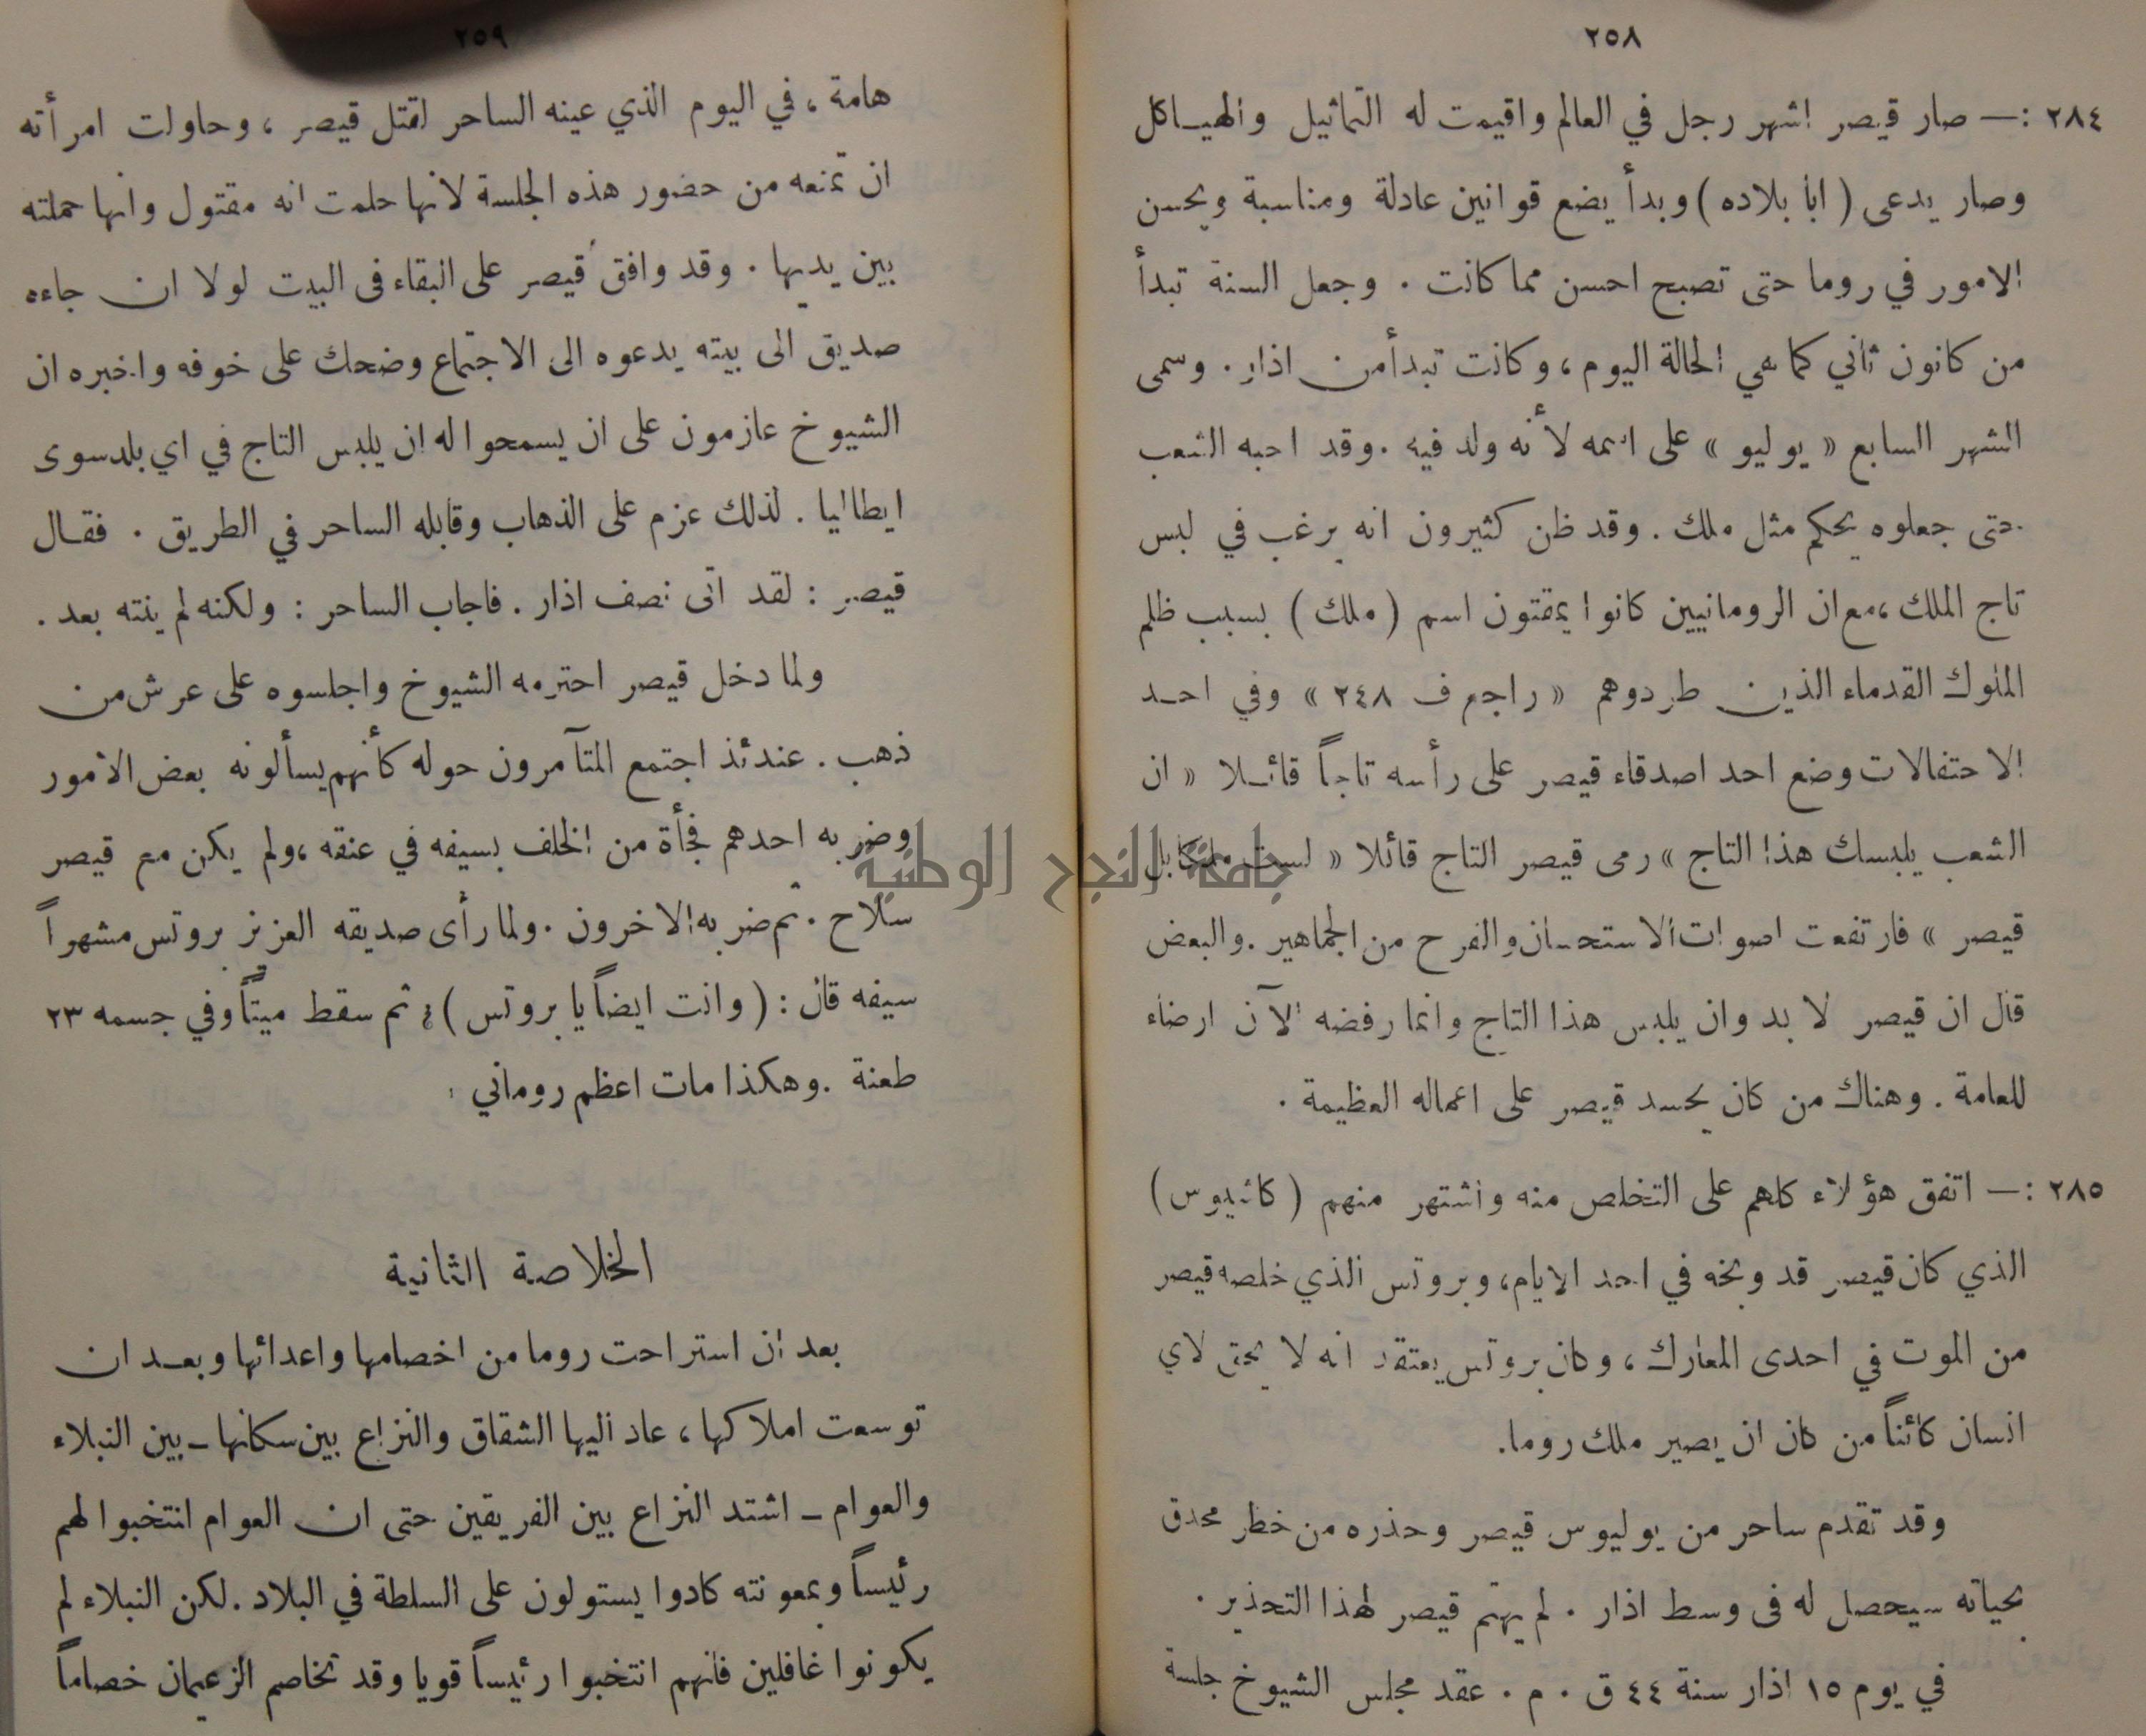 ٢٥٨
٢٨٤ :— صار قيصر اشهر رجل في العالم واقيمت له التماثيل والهياكل
وصار يدعى ( ابا بلاده ) وبدأ يضع قوانين عادلة ومناسبة ويحسن
الامور في روما حتى تصبح احسن مما كانت . وجعل السنة تبدأ
من كانون ثاني كما هي الحالة اليوم ، وكانت تبدأ من اذار . وسمى
الشهر السابع « يوليو » على اسمه لأنه ولد فيه . وقد احبه الشعب
حتى جعلوه يحكم مثل ملك . وقد ظن كثيرون انه يرغب في لبس
تاج الملك ،مع ان الرومانيين كانوا يمقتون اسم ( ملك ) بسبب ظلم
الملوك القدماء الذين طردوهم « راجع ف ٢٤٨ » وفي احد
الاحتفالات وضع احد اصدقاء قيصر على رأسه تاجاً قائلا « ان
الشعب يلبسك هذا التاج » رمى قيصر التاج قائلا « لست ملكا بل
قيصر » فارتفعت اصوات الاستحسان والفرح من الجماهير . والبعض
قال ان قيصر لا بد وان يلبس هذا التاج وانما رفضه الآن ارضاء
للعامة . وهناك من كان يحسد قيصر على اعماله العظيمة .
٢٨٥ :— اتفق هؤلاء كلهم على التخلص منه واشتهر منهم ( كاسيوس )
الذي كان قيصر قد وبخه في احد الايام، وبروتس الذي خلصه قيصر
من الموت في احدى المعارك ، وكان بروتس يعتقد انه لا يحق لاي
انسان كائناً من كان ان يصير ملك روما.
وقد تقدم ساحر من يوليوس قيصر وحذره من خطر محدق
بحياته سيحصل له في وسط اذار . لم يهتم قيصر لهذا التحذير .
في يوم ١٥ اذار سنة ٤٤ ق . م . عقد مجلس الشيوخ جلسة
٢٥٩
هامة ، في اليوم الذي عينه الساحر لقتل قيصر ، وحاولت امرأته
ان تمنعه من حضور هذه الجلسة لانها حلمت انه مقتول وانها حملته
بين يديها . وقد وافق قيصر على البقاء في البيت لولا ان جاءه
صديق الى بيته يدعوه الى الاجتماع وضحك على خوفه واخبره ان
الشيوخ عازمون على ان يسمحوا له ان يلبس التاج في اي بلد سوى
ايطاليا . لذلك عزم على الذهاب وقابله الساحر في الطريق . فقال
قيصر : لقد اتى نصف اذار . فاجاب الساحر : ولكنه لم ينته بعد .
ولما دخل قيصر احترمه الشيوخ واجلسوه على عرش من
ذهب . عندئذ اجتمع المتآمرون حوله كأنهم يسألونه بعض الأمور
وضربه احدهم فجأة من الخلف بسيفه في عنقه ،ولم يكن مع قيصر
سلاح . ثم ضربه الاخرون . ولما رأى صديقه العزيز بروتس مشهراً
سيفه قال : ( وانت ايضاً يا بروتس ) ؟ ثم سقط ميتاً وفي جسمه ٢٣
طعنة . وهكذا مات اعظم روماني .
الخلاصة الثانية
بعد ان استراحت روما من اخصامها واعدائها وبعد ان
توسعت املاكها ، عاد اليها الشقاق والنزاع بين سكانها ــ بين النبلاء
والعوام ــ اشتد النزاع بين الفريقين حتى ان العوام انتخبوا لهم
رئيساً وبمعونته كادوا يستولون على السلطة في البلاد . لكن النبلاء لم
يكونوا غافلين فانهم انتخبوا رئيساً قويا وقد تخاصم الزعيمان خصاماً
جامعة النجاح الوطنية